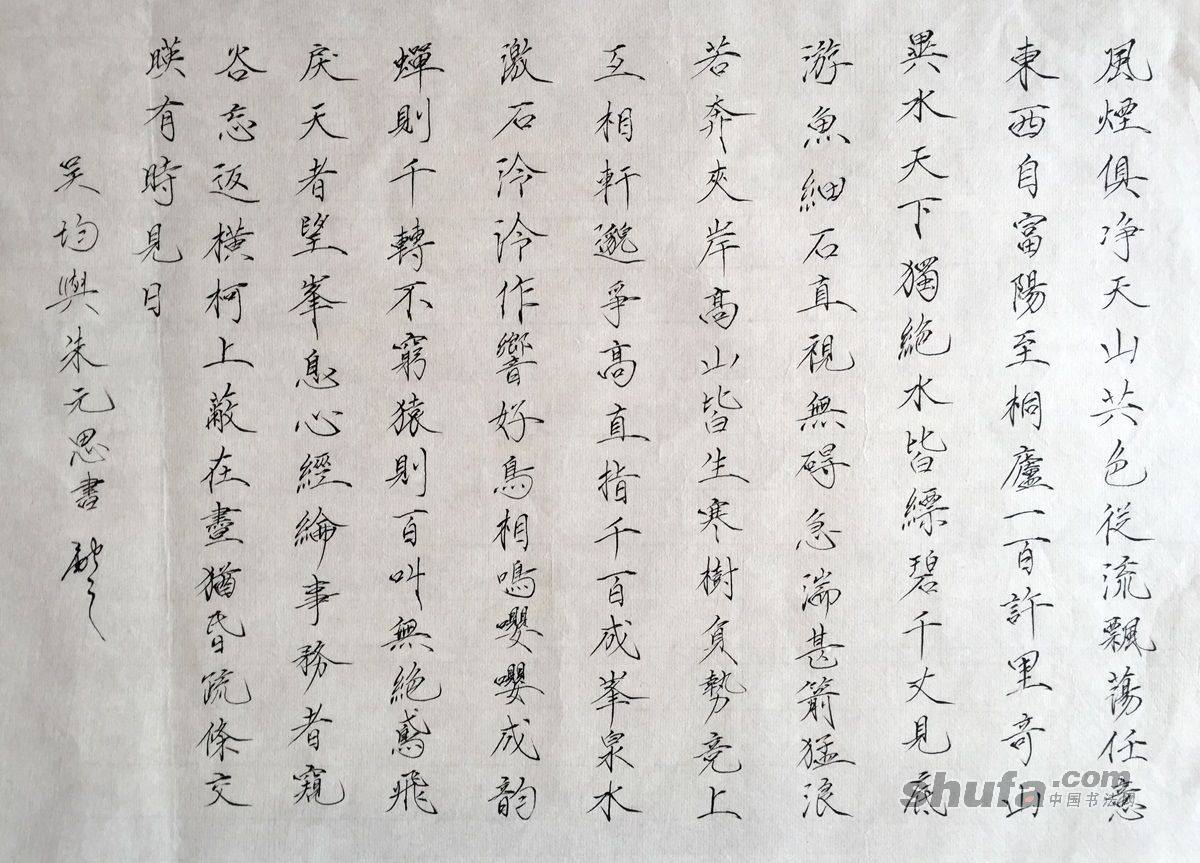 風煙俱净天山共色從流飄蕩任意
東西自富陽至桐廬一百許里奇山
異水天下獨絶水皆縹碧千丈見底
游魚細石直視無碍急湍甚箭猛浪
若奔夾岸高山皆生寒樹負勢竞上
互相軒邈爭高直指千百成峯泉水
激石泠泠作響好鳥相鳴嚶嚶成韵
蟬則千轉不窮猿則百叫無絶鳶飛
戾天者望峯息心經綸事務者窺
谷忘返橫柯上蔽在晝猶昏疏條交
暎有時見日
吴均與朱元思書
shufa.com
中国书法网